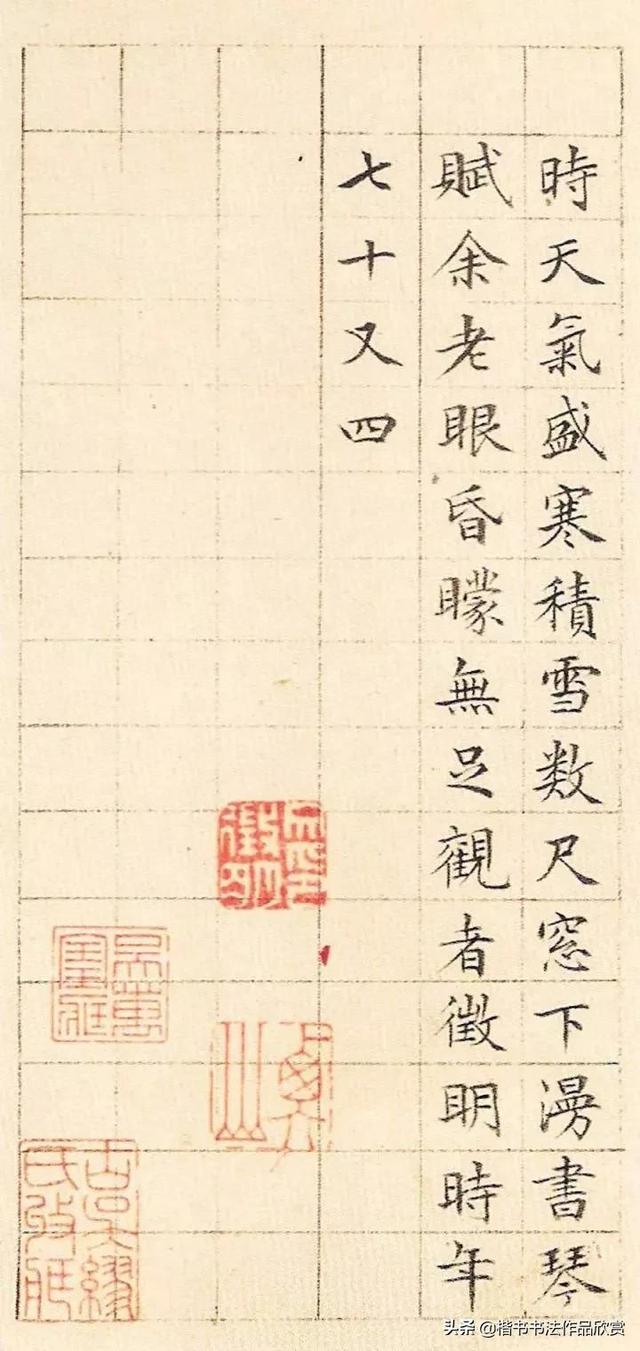 時天氣盛寒積雪数尺窓下漫書琴
賦余老眼昏矇無足觀者徴明時年
七十又四
头条 @楷书书法作品欣赏